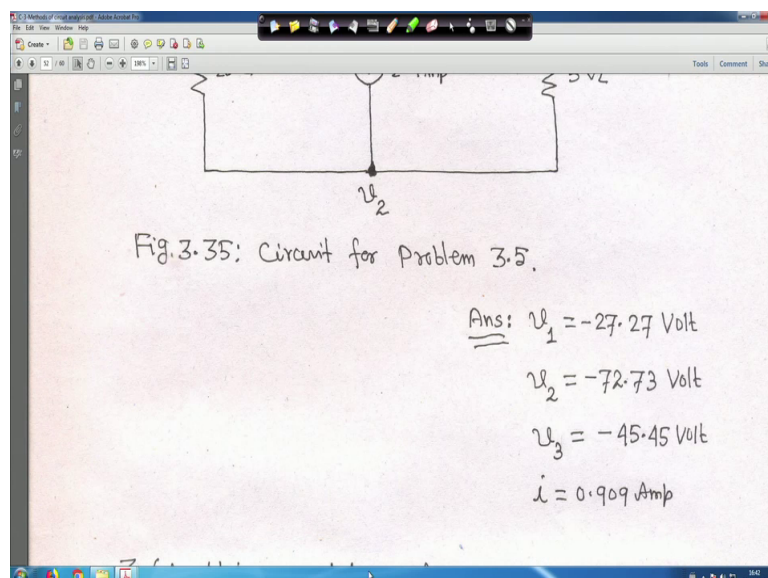 C-3-Methods of circuit analysis.pdf - Adobe Acrobat Pro
File Edit View Window Help
Create
52 / 60 198% Tools Comment
2 Amp 5 Ω
v2
Fig. 3.35: Circuit for Problem 3.5.
Ans: v1 = -27.27 Volt
v2 = -72.73 Volt
v3 = -45.45 Volt
i = 0.909 Amp
16:42